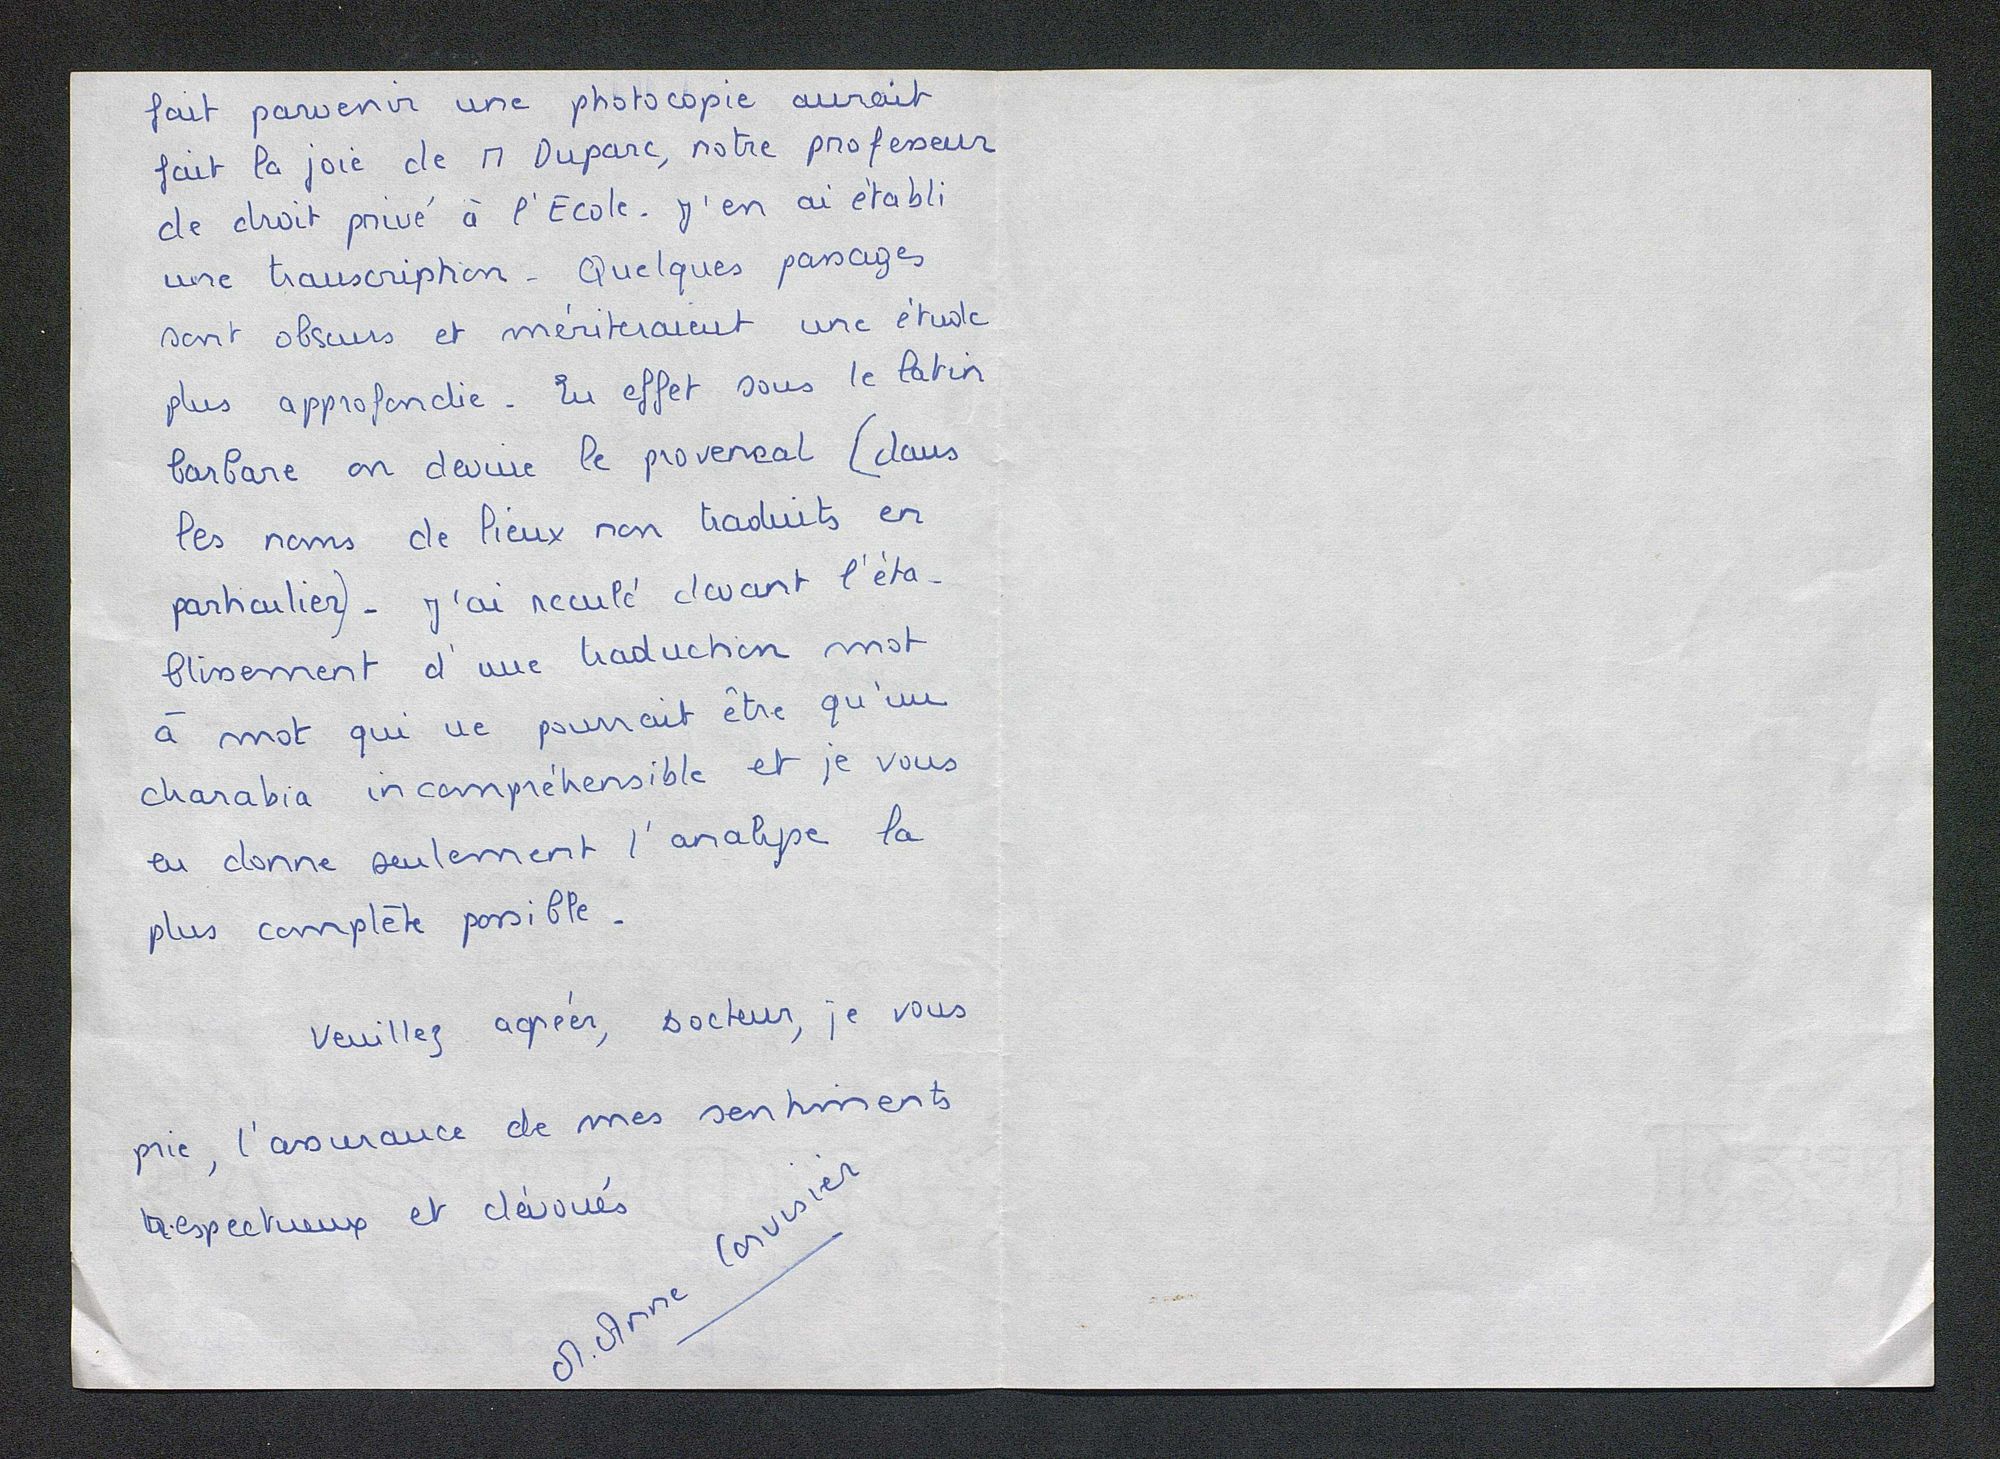 fait parvenir une photocopie aurait
fait la joie de M Duparc, notre professeur
de droit privé à l'Ecole. J'en ai établi
une transcription - Quelques passages
sont obscurs et mériteraient une étude
plus approfondie - En effet sous le latin
barbare on devine le provençal (dans
les noms de lieux non traduits en
particulier) - J'ai reculé devant l'éta-
blissement d'une traduction mot
à mot qui ne pourrait être qu'un
charabia incompréhensible et je vous
en donne seulement l'analyse la
plus complète possible -
Veuillez agréer, Docteur, je vous
prie, l'assurance de mes sentiments
respectueux et dévoués
M. Anne Corvisier